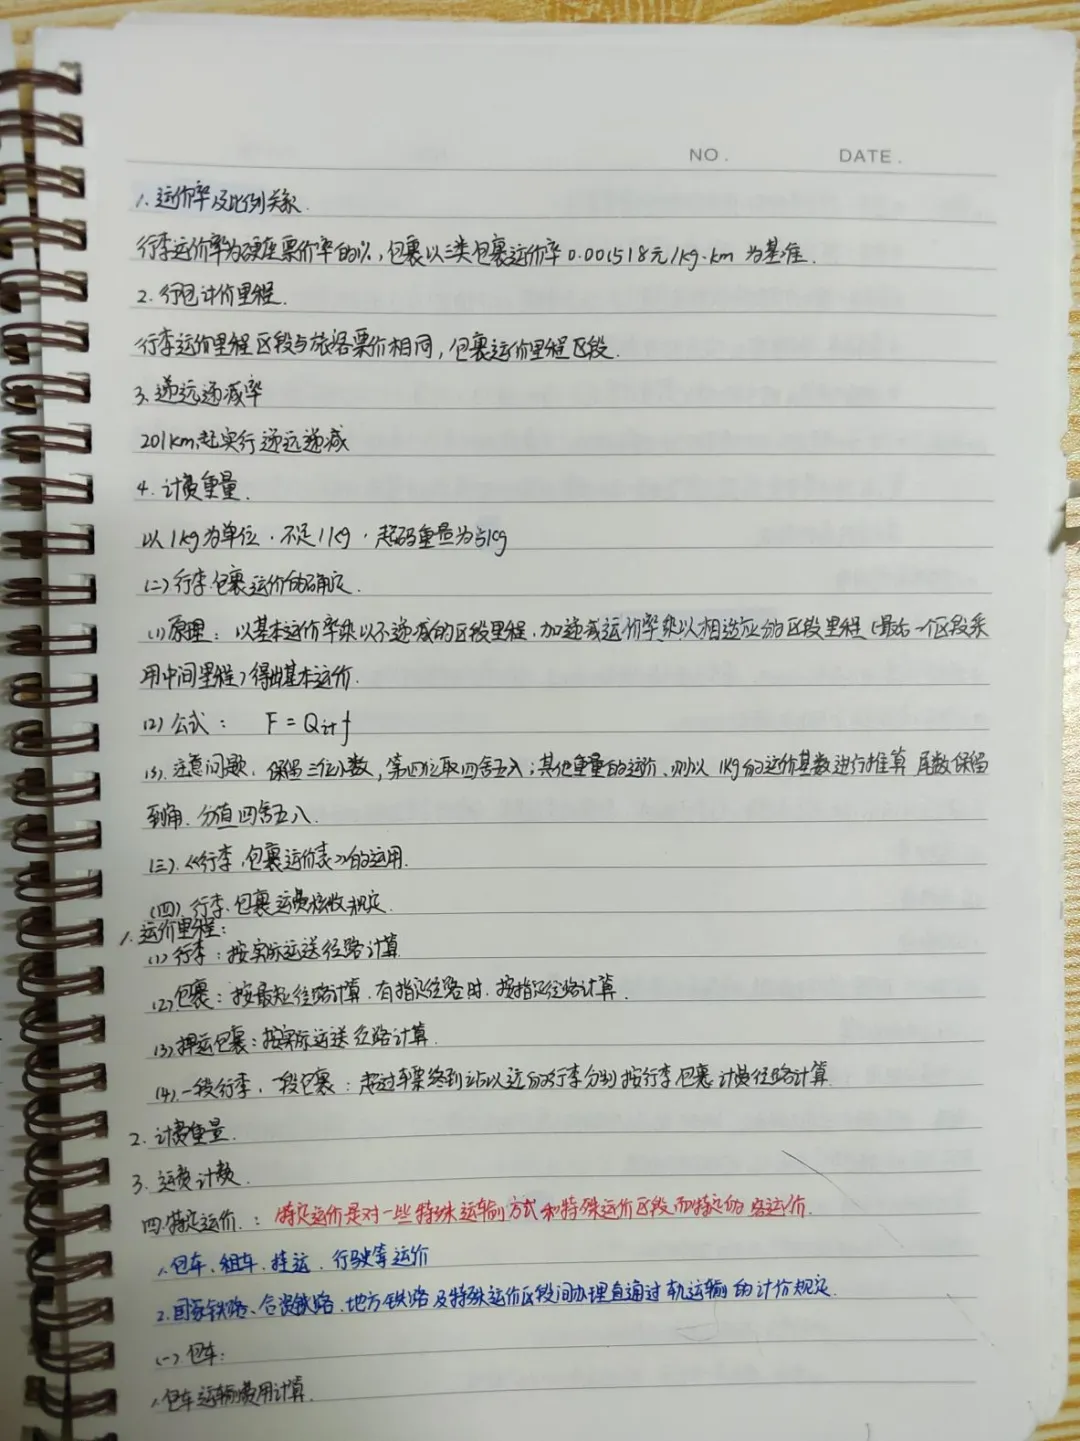 NO. DATE.
1. 运价率及比例关系.
行李运价率为硬座票价率的1%, 包裹以三类包裹运价率0.001518元/kg·km 为基准.
2. 行包计价里程.
行李运价里程区段与旅客票价相同, 包裹运价里程区段.
3. 递远递减率
201km起实行递远递减
4. 计费重量.
以1kg为单位. 不足1kg. 起码重量为5kg
(二) 行李.包裹运价的确定.
(1) 原理: 以基本运价率乘以不递减的区段里程, 加递减运价率乘以相适应的区段里程(最后一个区段采
用中间里程)得出基本运价.
(2) 公式: F=Q计f
(3). 注意问题. 保留三位小数, 第四位取四舍五入; 其他重量的运价. 则以1kg的运价基数进行推算 尾数保留
到角. 分值四舍五入.
(三). 《行李.包裹运价表》的运用.
(四). 行李.包裹运费核收规定.
1. 运价里程:
(1) 行李: 按实际运送径路计算
(2) 包裹: 按最短径路计算. 有指定径路时. 按指定径路计算.
(3) 押运包裹: 按实际运送径路计算.
(4). 一段行李. 一段包裹: 超过车票终到站以远的行李分别按行李.包裹计费径路计算
2. 计费重量.
3. 运费计费.
四.特定运价.: 特定运价是对一些特殊运输方式和特殊运价区段而特定的客运价.
1. 包车、租车、挂运、行驶等运价
2. 国家铁路、合资铁路、地方铁路及特殊运价区段间办理直通过轨运输的计价规定.
(一) 包车:
1. 包车运输费用计算.